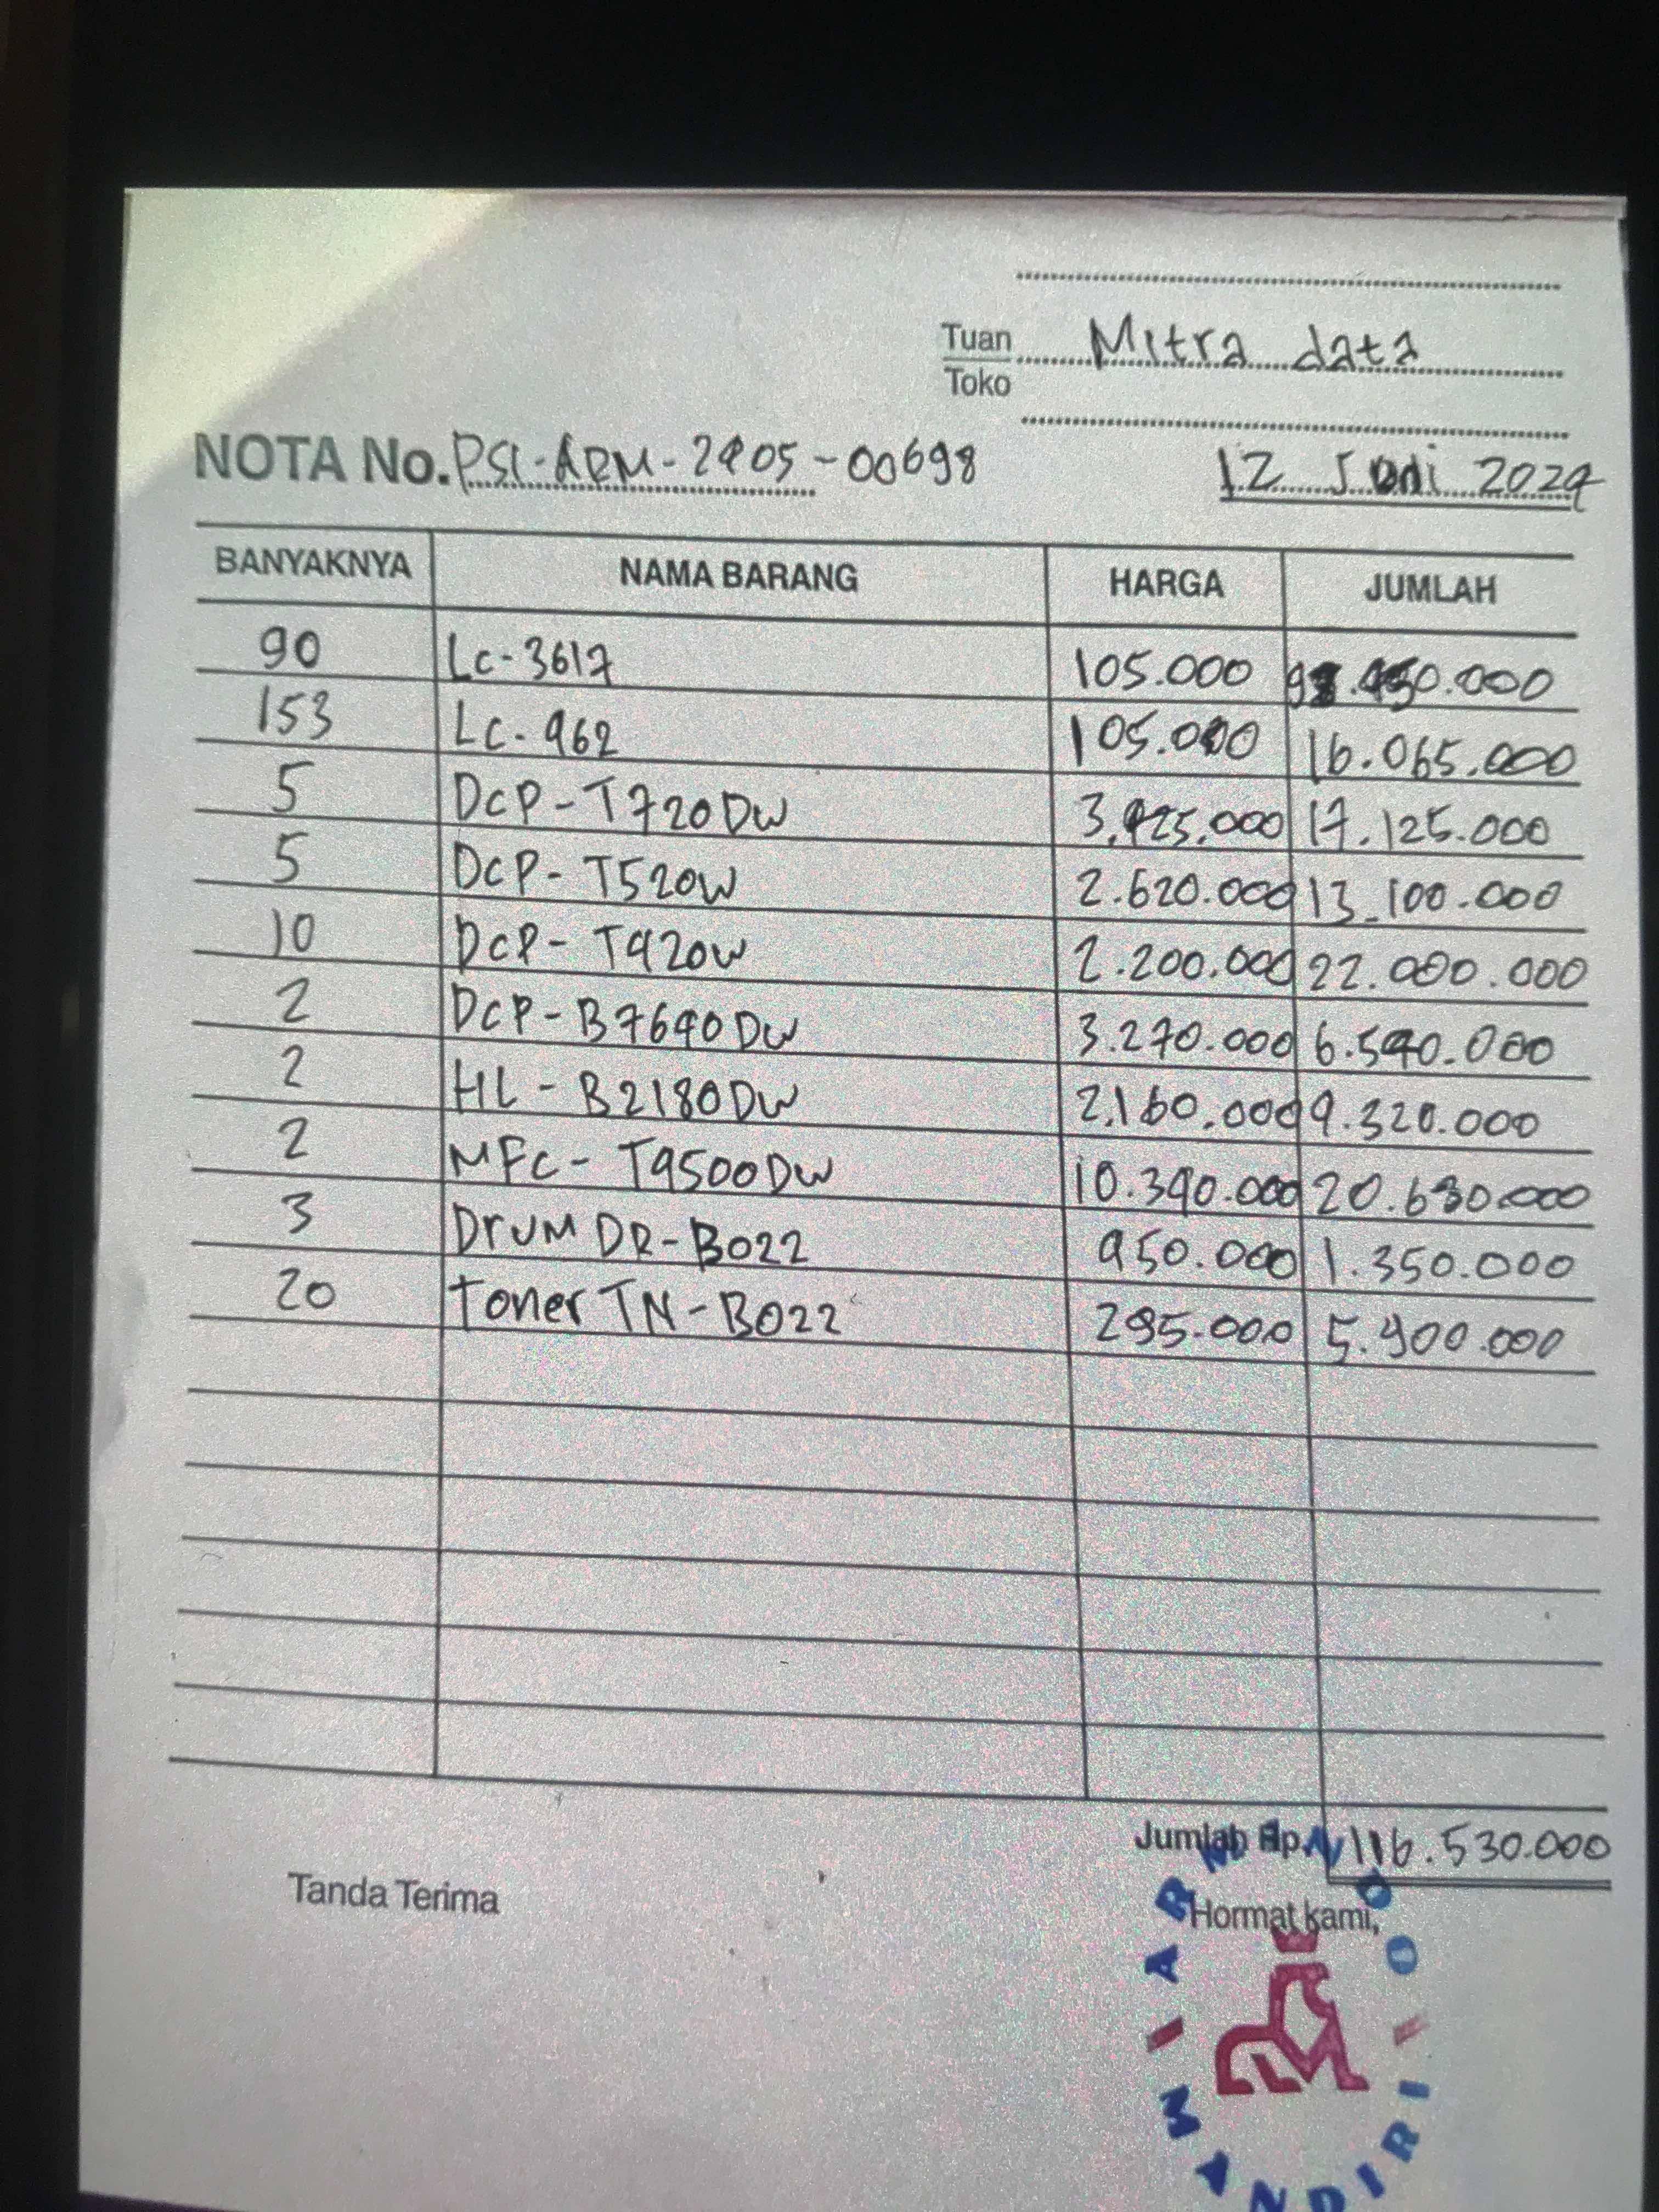 Tuan Mitra data
Toko
NOTA No. PSI-ARM-2405-00698 12 Juni 2024
BANYAKNYA NAMA BARANG HARGA JUMLAH
90 LC-3617 105.000
153 LC-462 105.000 16.065.000
5 DCP-T720DW 3.425.000 17.125.000
5 DCP-T520W 2.620.000 13.100.000
10 DCP-T420W 2.200.000 22.000.000
2 DCP-B7640DW 3.270.000 6.540.000
2 HL-B2180DW 2.160.000 4.320.000
2 MFC-T4500DW 10.340.000 20.680.000
3 Drum DR-B022 450.000 1.350.000
20 Toner TN-B022 295.000 5.900.000
Jumlah Rp. 116.530.000
Tanda Terima Hormat kami,
MANDIRI